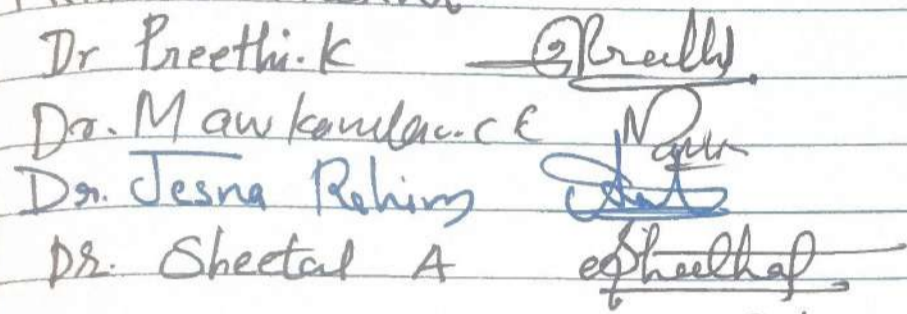 Dr Preethi.K Preethi
Dr. Mawkandan.C E
Dr. Jesna Rahim
DR. Sheetal A Sheethal